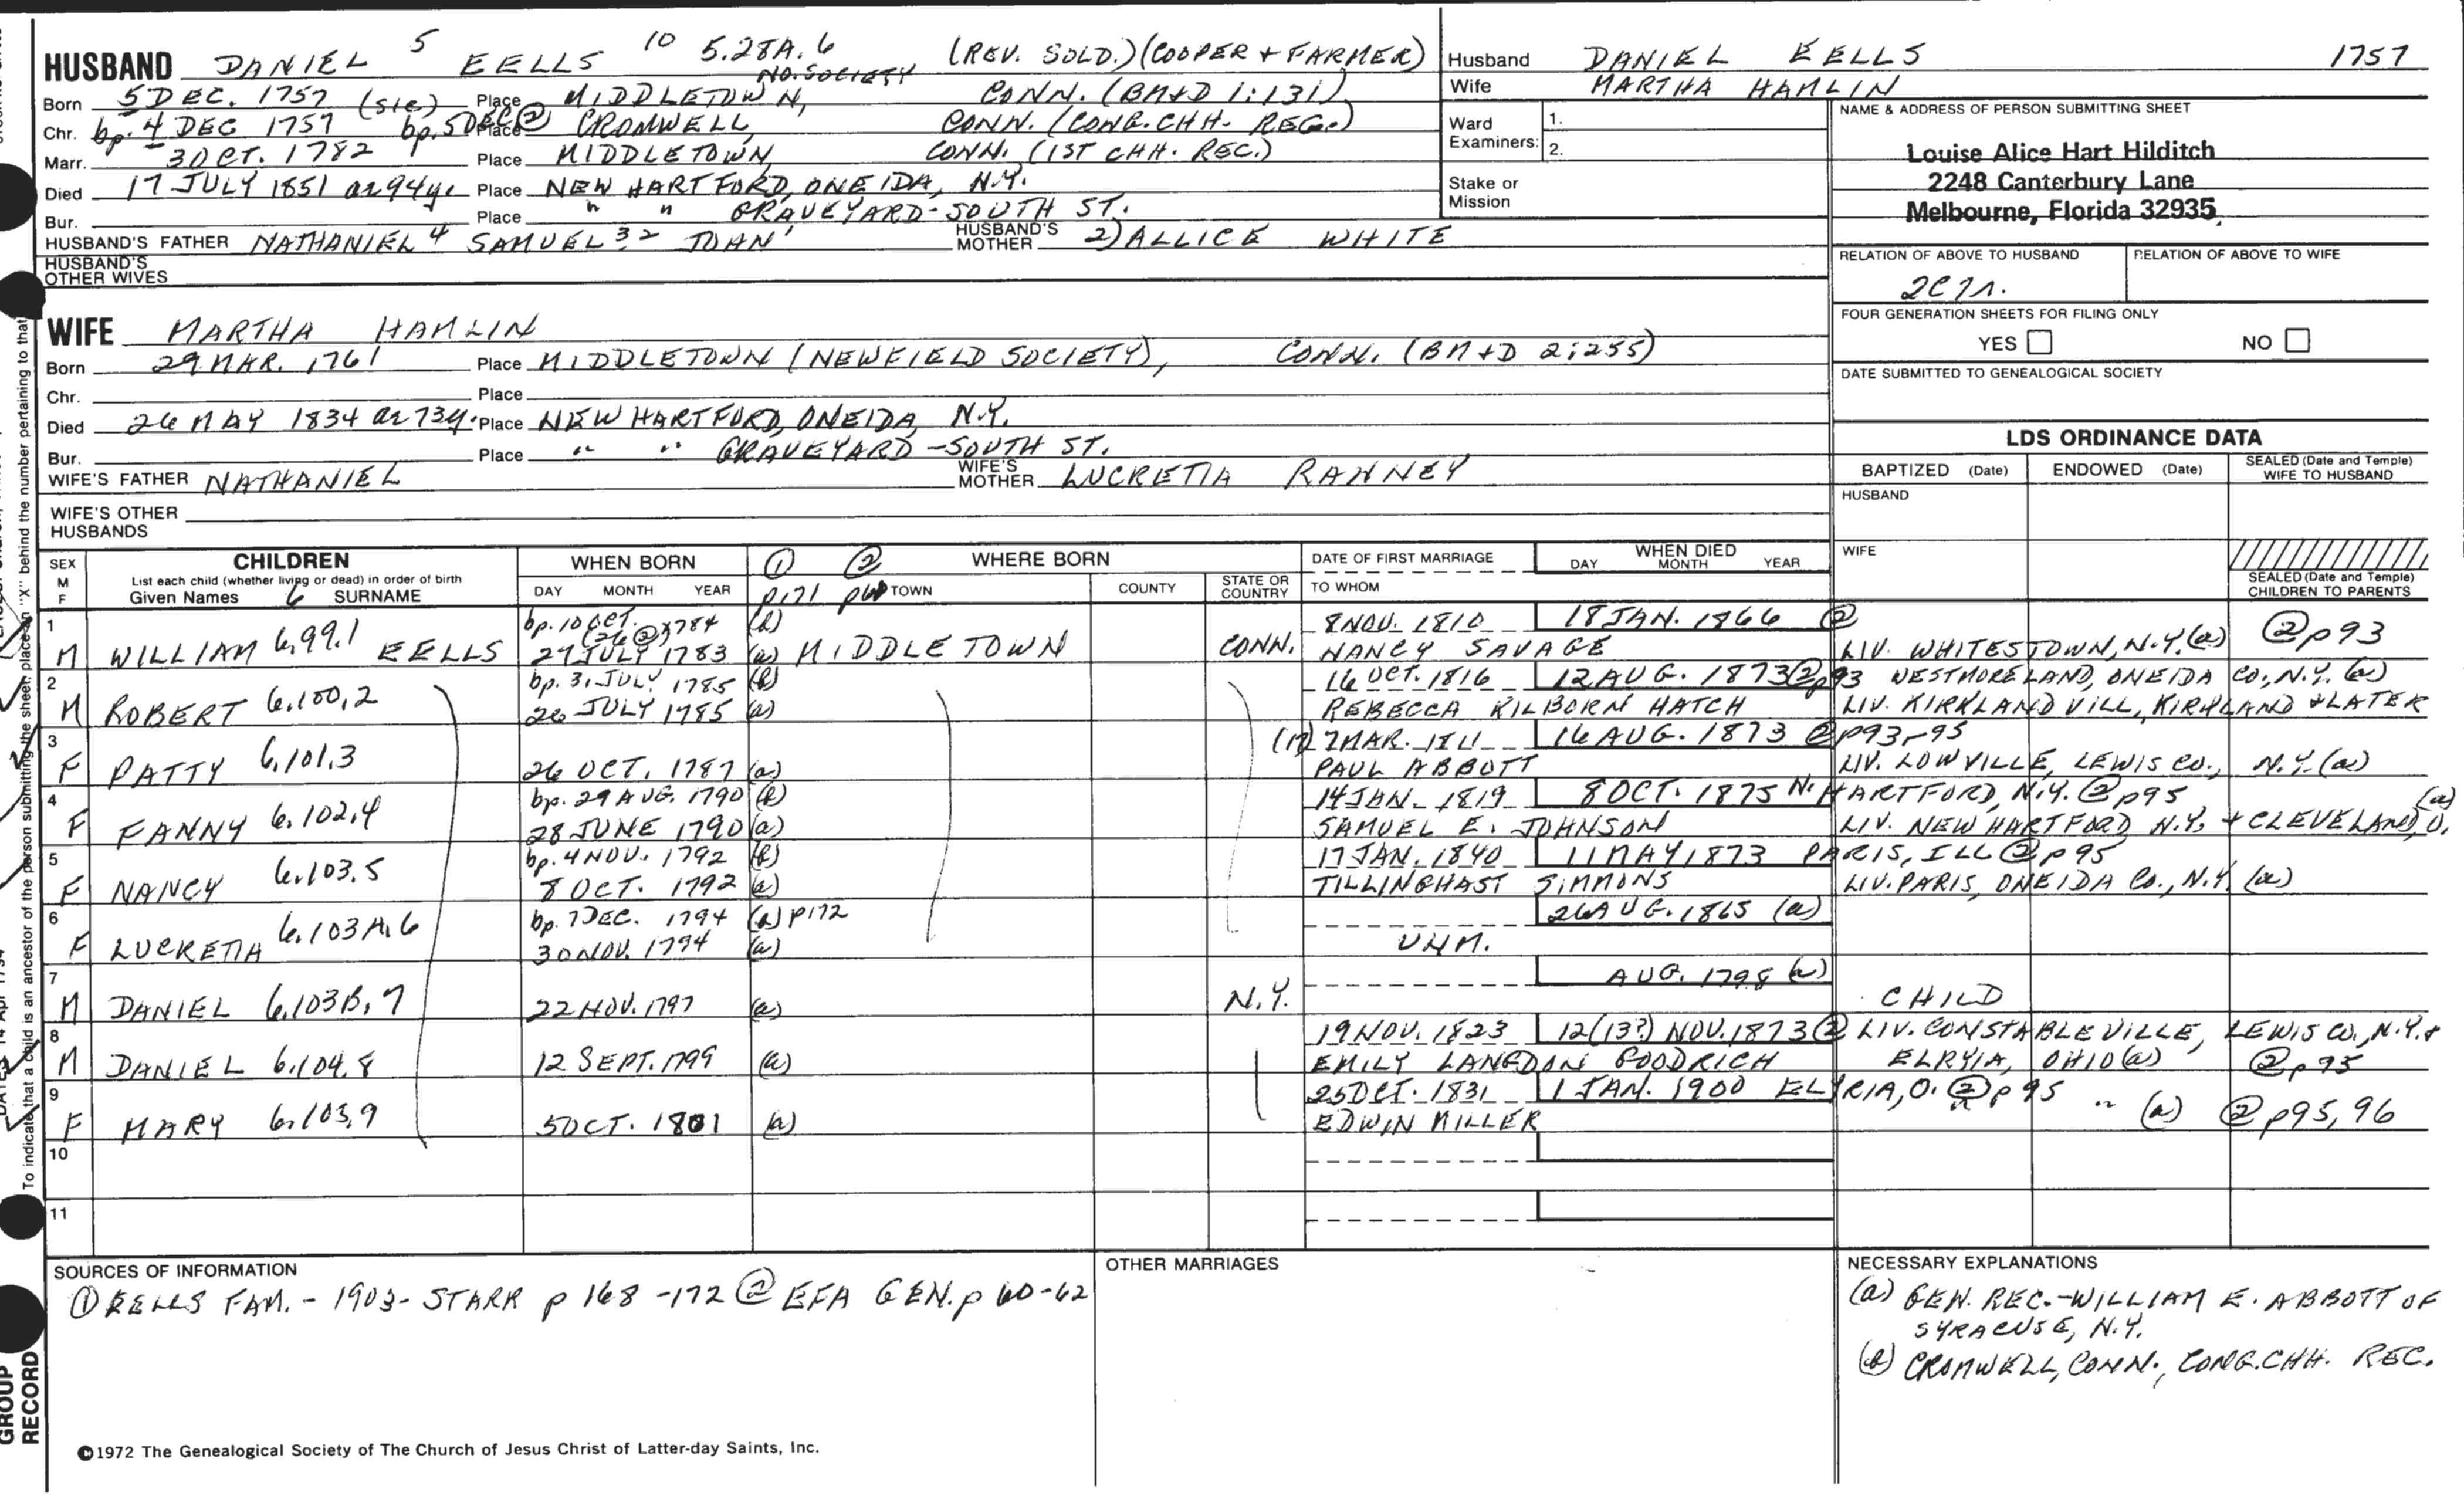 HUSBAND DANIEL 5 EELLS 10 5.28A.6 (REV. SOLD.) (COOPER + FARMER)
NO. SOCIETY
Born 5 DEC. 1757 (sic) Place MIDDLETOWN, CONN. (BM+D 1:131)
Chr. bp. 4 DEC 1757 bp. 5 DEC ② Place CROMWELL, CONN. (CONG. CHH. REG.)
Marr. 3 OCT. 1782 Place MIDDLETOWN, CONN. (1ST CHH. REC.)
Died 17 JULY 1851 ae 94y. Place NEW HARTFORD, ONEIDA, N.Y.
Bur. Place " " GRAVEYARD - SOUTH ST.
HUSBAND'S FATHER NATHANIEL 4 SAMUEL 3 2 JOHN 1 HUSBAND'S MOTHER 2) ALLICE WHITE
HUSBAND'S OTHER WIVES
Husband DANIEL EELLS 1757
Wife MARTHA HAMLIN
Ward Examiners: 1.
2.
Stake or Mission
NAME & ADDRESS OF PERSON SUBMITTING SHEET
Louise Alice Hart Hilditch
2248 Canterbury Lane
Melbourne, Florida 32935
RELATION OF ABOVE TO HUSBAND RELATION OF ABOVE TO WIFE
2C7r.
FOUR GENERATION SHEETS FOR FILING ONLY
YES NO
DATE SUBMITTED TO GENEALOGICAL SOCIETY
WIFE MARTHA HAMLIN
Born 29 MAR. 1761 Place MIDDLETOWN (NEWFIELD SOCIETY), CONN. (BM+D 2:255)
Chr. Place
Died 26 MAY 1834 ae 73y. Place NEW HARTFORD, ONEIDA, N.Y.
Bur. Place " " GRAVEYARD - SOUTH ST.
WIFE'S FATHER NATHANIEL WIFE'S MOTHER LUCRETIA RANNEY
WIFE'S OTHER HUSBANDS
LDS ORDINANCE DATA
BAPTIZED (Date) ENDOWED (Date) SEALED (Date and Temple) WIFE TO HUSBAND
HUSBAND
WIFE
SEALED (Date and Temple) CHILDREN TO PARENTS
SEX M F CHILDREN WHEN BORN ① ② WHERE BORN DATE OF FIRST MARRIAGE WHEN DIED
List each child (whether living or dead) in order of birth
Given Names 6 SURNAME DAY MONTH YEAR p171 p60 TOWN COUNTY STATE OR COUNTRY TO WHOM DAY MONTH YEAR
1 bp. 10 OCT. 1784 (b) 8 NOV. 1810 18 JAN. 1866 ②
(26 ②)
M WILLIAM 6.99.1 EELLS 27 JULY 1783 (a) MIDDLETOWN CONN. NANCY SAVAGE LIV. WHITESTOWN, N.Y. (a) ② p93
2 bp. 31 JULY 1785 (b) 16 OCT. 1816 12 AUG. 1873 ② p93 WESTMORELAND, ONEIDA CO., N.Y. (a)
M ROBERT 6.100.2 26 JULY 1785 (a) REBECCA KILBORN HATCH LIV. KIRKLAND VILL, KIRKLAND + LATER
3 7 MAR. 1811 16 AUG. 1873 ② p93-95
F PATTY 6.101.3 26 OCT. 1787 (a) PAUL ABBOTT LIV. LOWVILLE, LEWIS CO., N.Y. (a)
4 bp. 29 AUG. 1790 (b) 14 JAN. 1819 8 OCT. 1875 N. HARTFORD, N.Y. ② p95
F FANNY 6.102.4 28 JUNE 1790 (a) SAMUEL E. JOHNSON LIV. NEW HARTFORD, N.Y. + CLEVELAND, O. (a)
5 bp. 4 NOV. 1792 (b) 17 JAN. 1840 11 MAY 1873 PARIS, ILL ② p95
F NANCY 6.103.5 8 OCT. 1792 (a) TILLINGHAST SIMMONS LIV. PARIS, ONEIDA CO., N.Y. (a)
6 bp. 7 DEC. 1794 (b) p172 26 AUG. 1865 (a)
F LUCRETIA 6.103A.6 30 NOV. 1794 (a) UNM.
7 AUG. 1798 (a)
M DANIEL 6.103B.7 22 NOV. 1797 (a) N.Y. CHILD
8 19 NOV. 1823 12 (13?) NOV. 1873 ② LIV. CONSTABLEVILLE, LEWIS CO., N.Y. +
M DANIEL 6.104.8 12 SEPT. 1799 (a) EMILY LANGDON GOODRICH ELRYIA, OHIO (a) ② p95
9 25 OCT. 1831 1 JAN. 1900 ELYRIA, O. ② p95
F MARY 6.103.9 5 OCT. 1801 (a) EDWIN MILLER " (a) ② p95, 96
10
11
SOURCES OF INFORMATION
① EELLS FAM. - 1903 - STARR p 168-172 ② EFA GEN. p 60-62
OTHER MARRIAGES
NECESSARY EXPLANATIONS
(a) GEN. REC. - WILLIAM E. ABBOTT OF
SYRACUSE, N.Y.
(b) CROMWELL, CONN., CONG. CHH. REC.
©1972 The Genealogical Society of The Church of Jesus Christ of Latter-day Saints, Inc.
To indicate that a child is an ancestor of the person submitting the sheet, place an "X" behind the number pertaining to that
GROUP RECORD